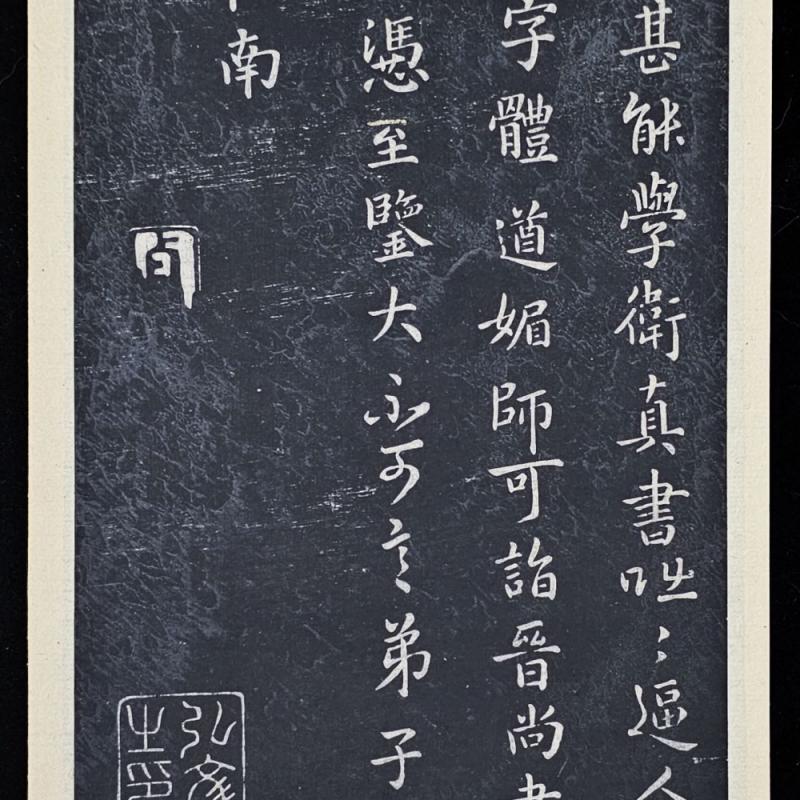 甚能學衛真書咄〻逼人
字體遒媚師可詣晉尚書
憑至鑒大不可言弟子
南
弘
之印